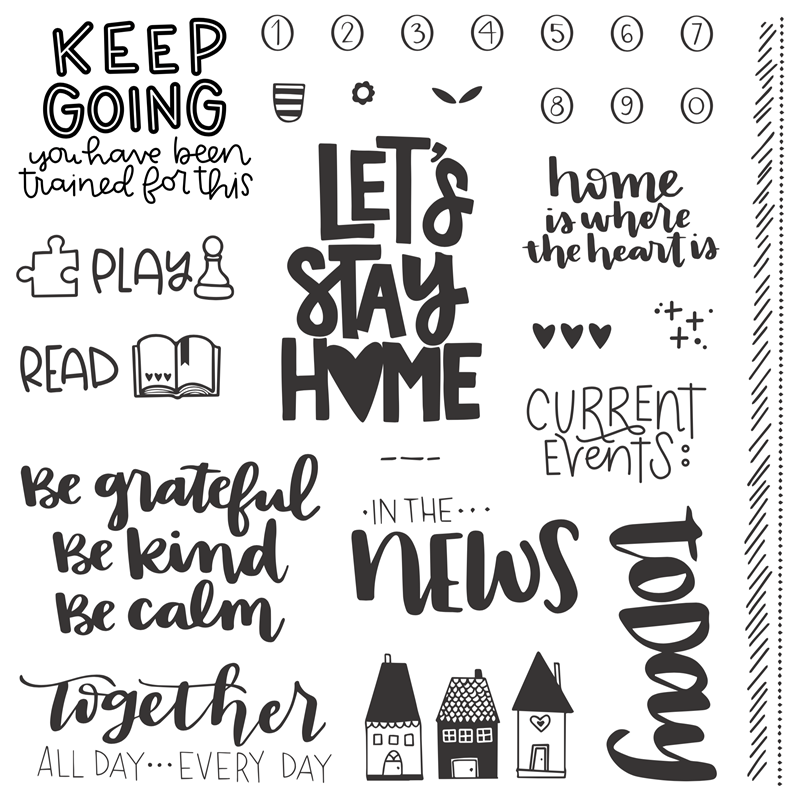 KEEP
GOING
you have been
trained for this
1 2 3 4 5 6 7
8 9 0
LET'S
STAY
HOME
home
is where
the heart is
PLAY
READ
CURRENT
EVENTS:
Be grateful
Be kind
Be calm
·IN THE···
NEWS
TODAY
together
ALL DAY···EVERY DAY